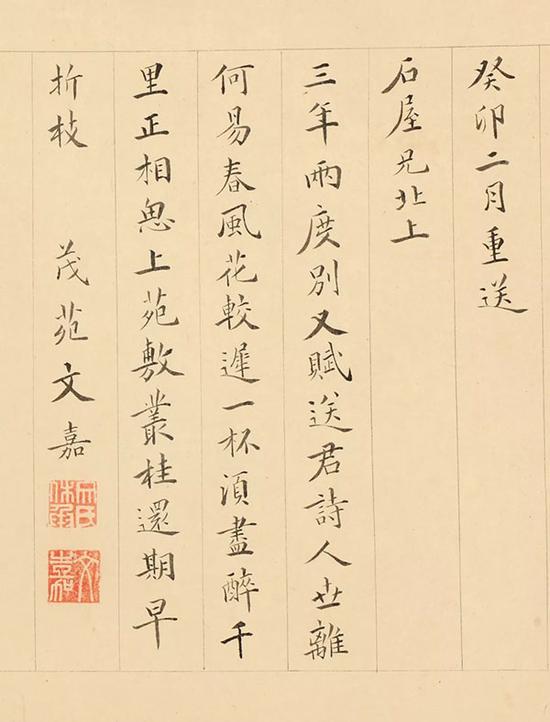 癸卯二月重送
石屋兄北上
三年兩度別又賦送君詩人世離
何易春風花較遲一杯須盡醉千
里正相思上苑敷叢桂還期早
折枝 茂苑文嘉
文氏休承
文嘉